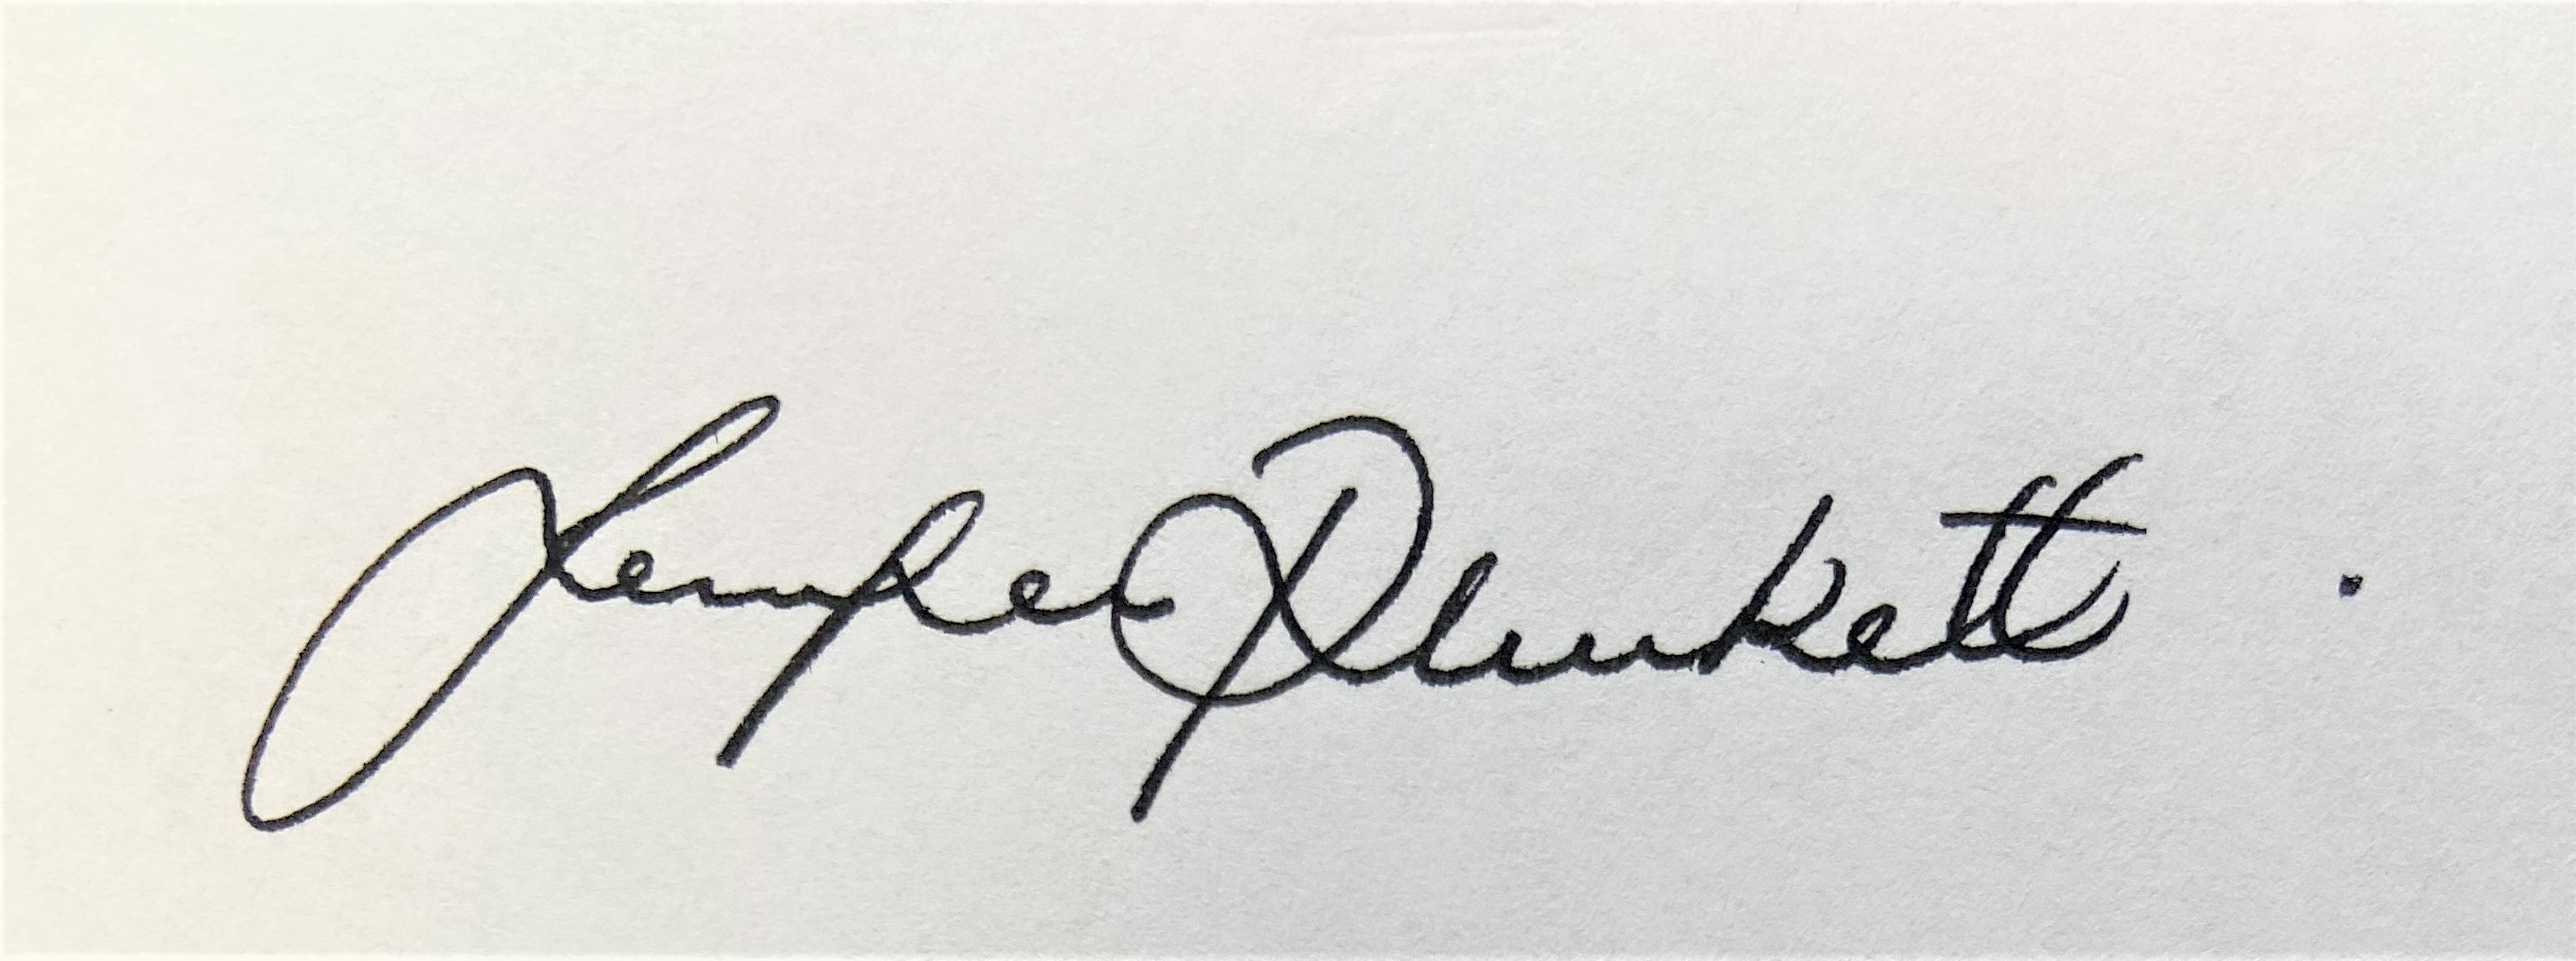 Temple Plunkett